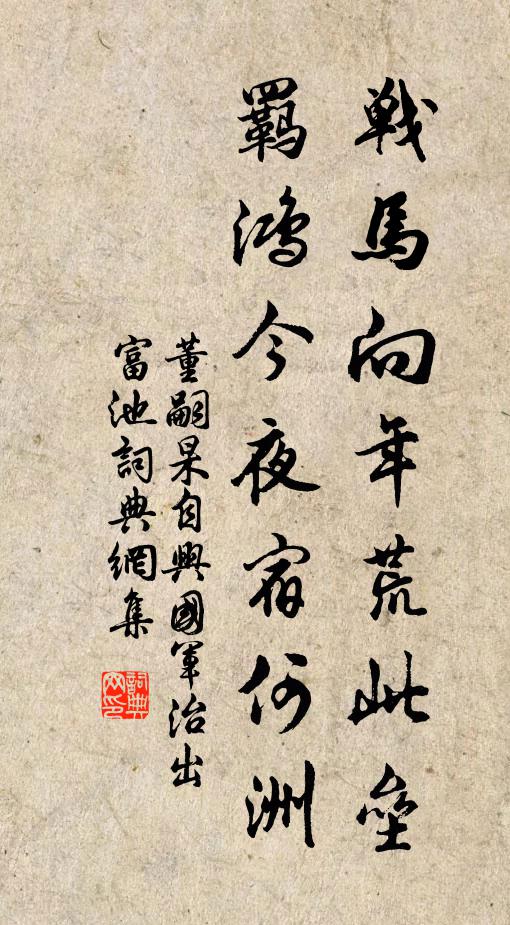 戦馬向年荒此壘
羈鴻今夜宿何洲
董嗣杲自興國軍治出
富池詞典網集
詞典網印